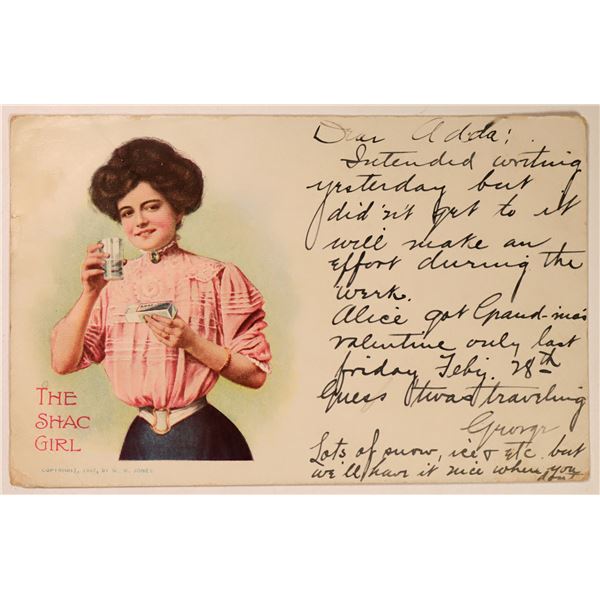 THE
SHAC
GIRL
COPYRIGHT, BY JONES
Dear Adda:
Intended writing
yesterday but
did'n't get to it
will make an
effort during the
week.
Alice got Grand-ma's
valentine only last
friday Feby. 28th
Guess 'twas traveling
George
Lots of snow, ice & etc. but
we'll have it nice when you